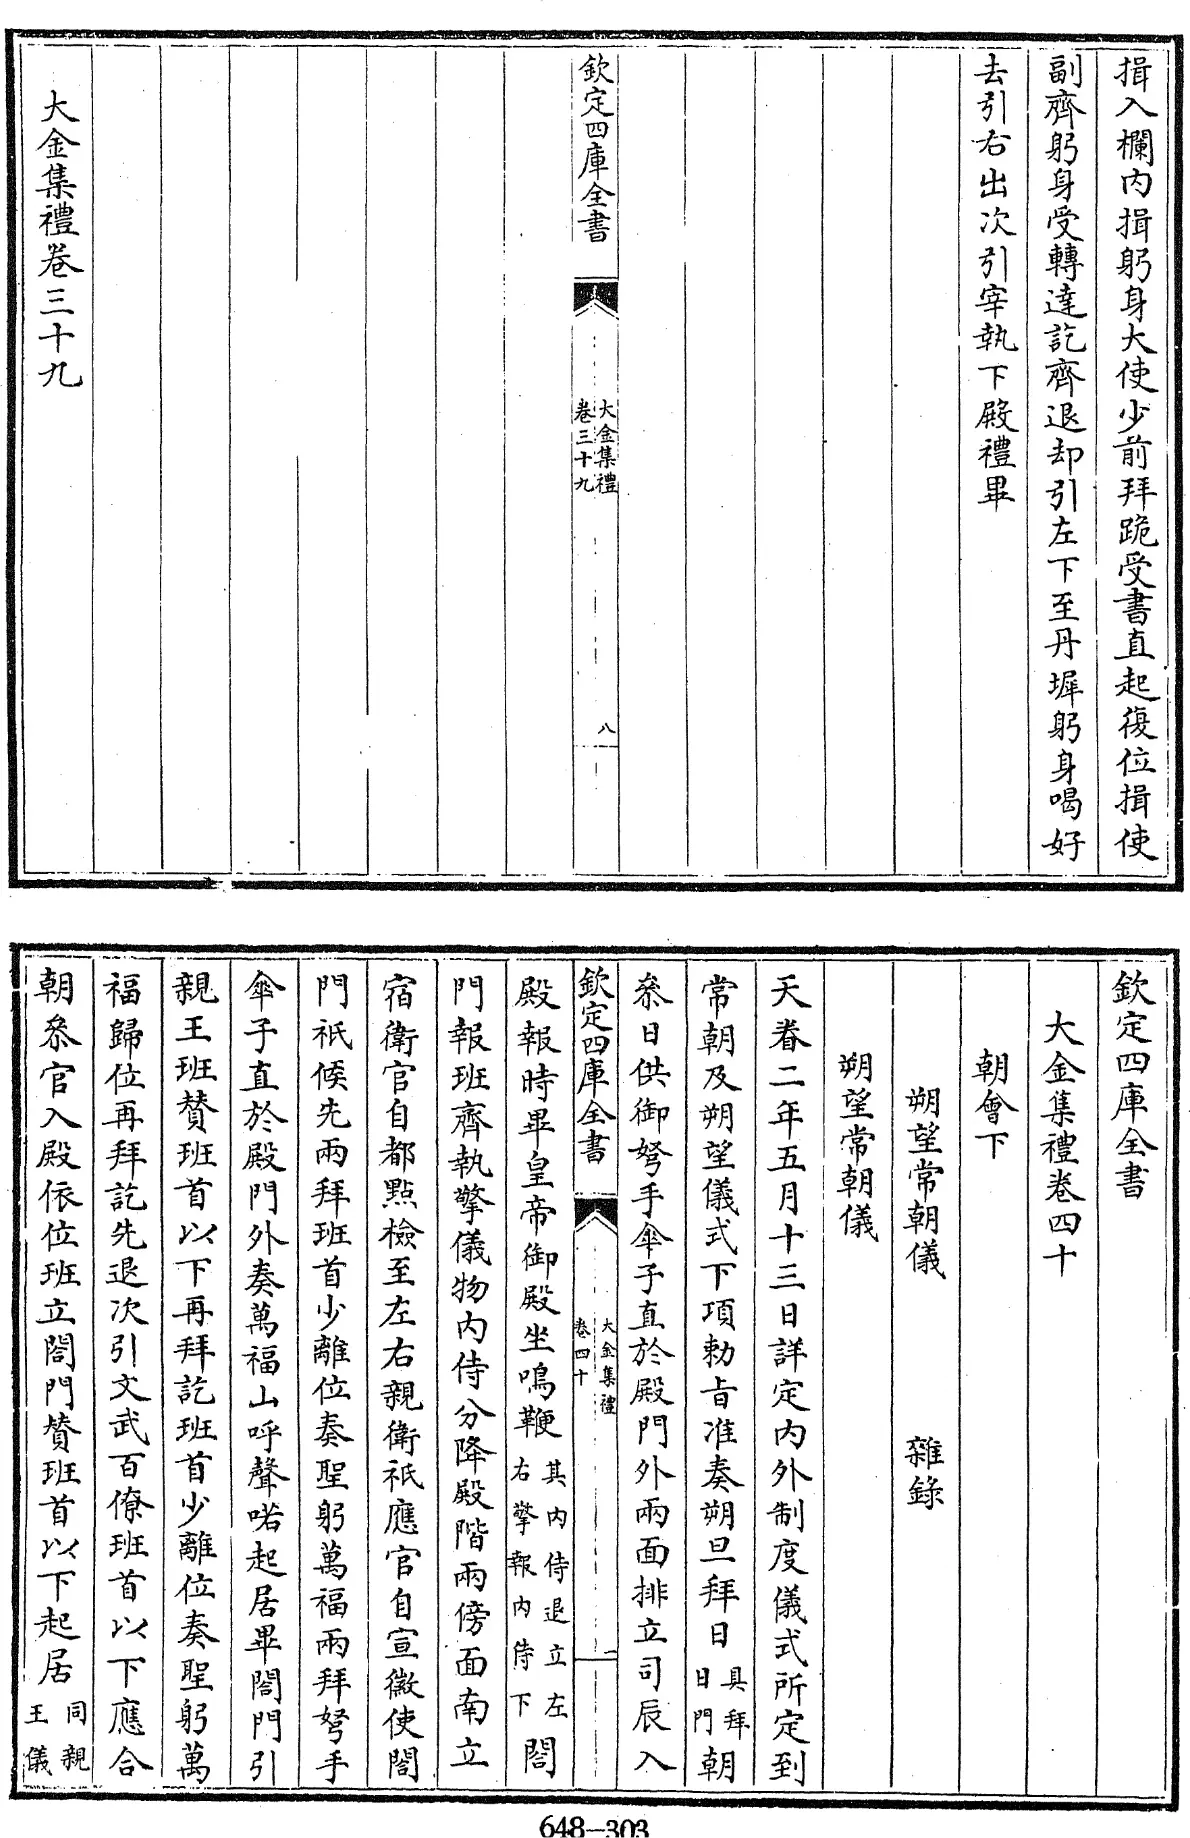 揖入欄内揖躬身大使少前拜跪受書直起復位揖使
副齊躬身受轉達訖齊退却引左下至丹墀躬身喝好
去引右出次引宰執下殿禮畢
欽定四庫全書
大金集禮
卷三十九
八
大金集禮卷三十九
欽定四庫全書
大金集禮卷四十
朝會下
朔望常朝儀 雜錄
朔望常朝儀
天眷二年五月十三日詳定内外制度儀式所定到
常朝及朔望儀式下項勅旨准奏朔旦拜日具拜日門朝
叅日供御弩手傘子直於殿門外兩面排立司辰入
欽定四庫全書
大金集禮
卷四十
一
殿報時畢皇帝御殿坐鳴鞭其内侍退立左右擎報内侍下閤
門報班齊執擎儀物内侍分降殿階兩傍面南立
宿衛官自都㸃檢至左右親衛祇應官自宣徽使閤
門祇候先兩拜班首少離位奏聖躬萬福兩拜弩手
傘子直於殿門外奏萬福山呼聲喏起居畢閤門引
親王班贊班首以下再拜訖班首少離位奏聖躬萬
福歸位再拜訖先退次引文武百僚班首以下應合
朝叅官入殿依位班立閤門贊班首以下起居同親王儀
648-303